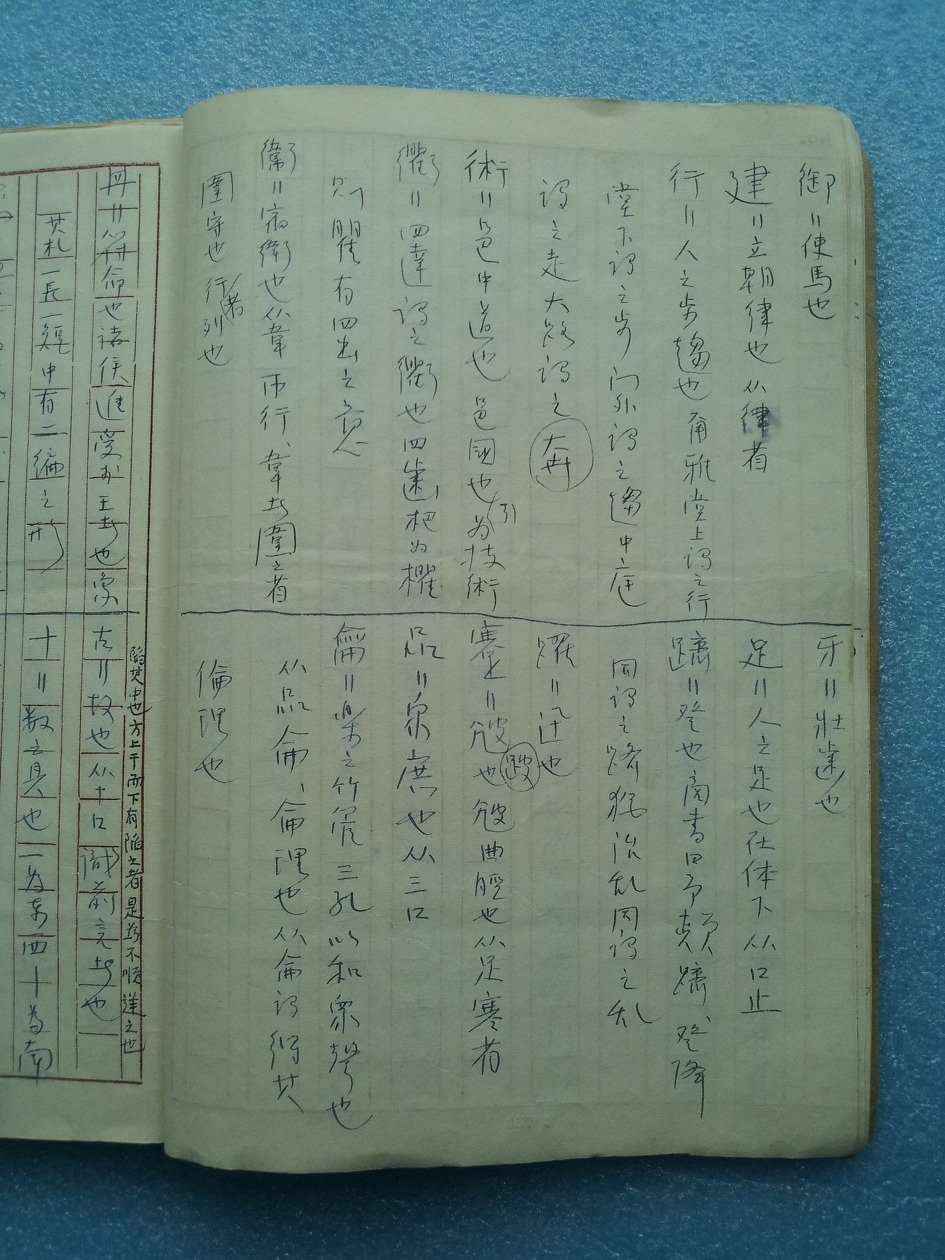 御〃使馬也
建〃立朝律也 从律者
行〃人之步趨也 爾雅堂上謂之行
堂下謂之步 门外謂之趨 中庭
謂之走 大路謂之 奔
術〃邑中道也 邑國也 引为技術
衢〃四達謂之衢也 四齒杷为欋
則瞿有四出之意
衞〃宿衛也 从韋帀行、韋者圍之者
圍守也 行者列也
牙〃壯齒也
足〃人之足也 在体下 从口止
蹻〃登也 商書曰予顛蹻、登降
同謂之蹻 猶治乱同謂之乱
躍〃迅也
蹇〃尳也 跛 尳曲脛也 从足寒省
品〃衆庶也 从三口
龠〃樂之竹管 三孔 以和衆聲也
从品侖、侖理也 从侖謂得其
倫理也
冊〃符命也 諸侯進受於王者也 象
其札一長一短 中有二編之形
陷其中也 方上干而下有陷之者 是为不順 逆之也
古〃故也 从十口 識前言者也
十〃数之具也 一为東西 丨為南